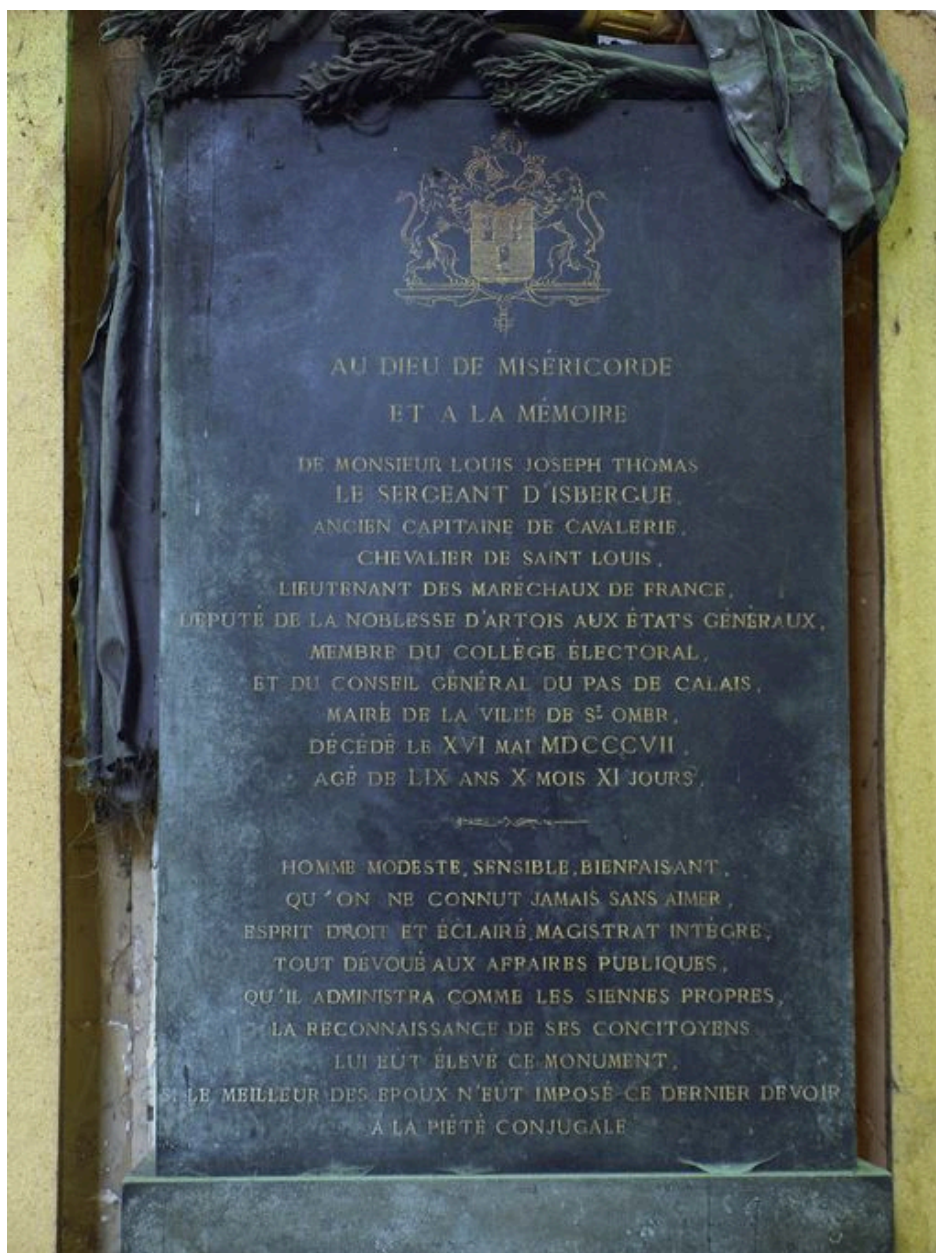 AU DIEU DE MISÉRICORDE
ET A LA MÉMOIRE
DE MONSIEUR LOUIS JOSEPH THOMAS
LE SERGEANT D'ISBERGUE,
ANCIEN CAPITAINE DE CAVALERIE,
CHEVALIER DE SAINT LOUIS,
LIEUTENANT DES MARÉCHAUX DE FRANCE,
DÉPUTÉ DE LA NOBLESSE D'ARTOIS AUX ÉTATS GÉNÉRAUX,
MEMBRE DU COLLÉGE ÉLECTORAL,
ET DU CONSEIL GÉNÉRAL DU PAS DE CALAIS,
MAIRE DE LA VILLE DE ST OMER,
DÉCÉDÉ LE XVI MAI MDCCCVII,
AGÉ DE LIX ANS X MOIS XI JOURS.
HOMME MODESTE, SENSIBLE, BIENFAISANT,
QU'ON NE CONNUT JAMAIS SANS AIMER,
ESPRIT DROIT ET ÉCLAIRÉ, MAGISTRAT INTÈGRE,
TOUT DÉVOUÉ AUX AFFAIRES PUBLIQUES,
QU'IL ADMINISTRA COMME LES SIENNES PROPRES,
LA RECONNAISSANCE DE SES CONCITOYENS
LUI EUT ÉLEVÉ CE MONUMENT,
SI LE MEILLEUR DES EPOUX N'EÛT IMPOSÉ CE DERNIER DEVOIR
A LA PIÉTÉ CONJUGALE